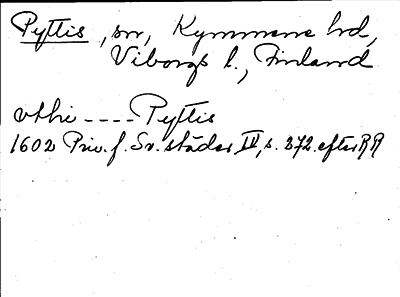 Pyttis, sn, Kymmene hd,
Viborgs l., Finland
vthi ---- Pyttis
1602 Priv. f. Sv. städer III, s. 272. efter RR